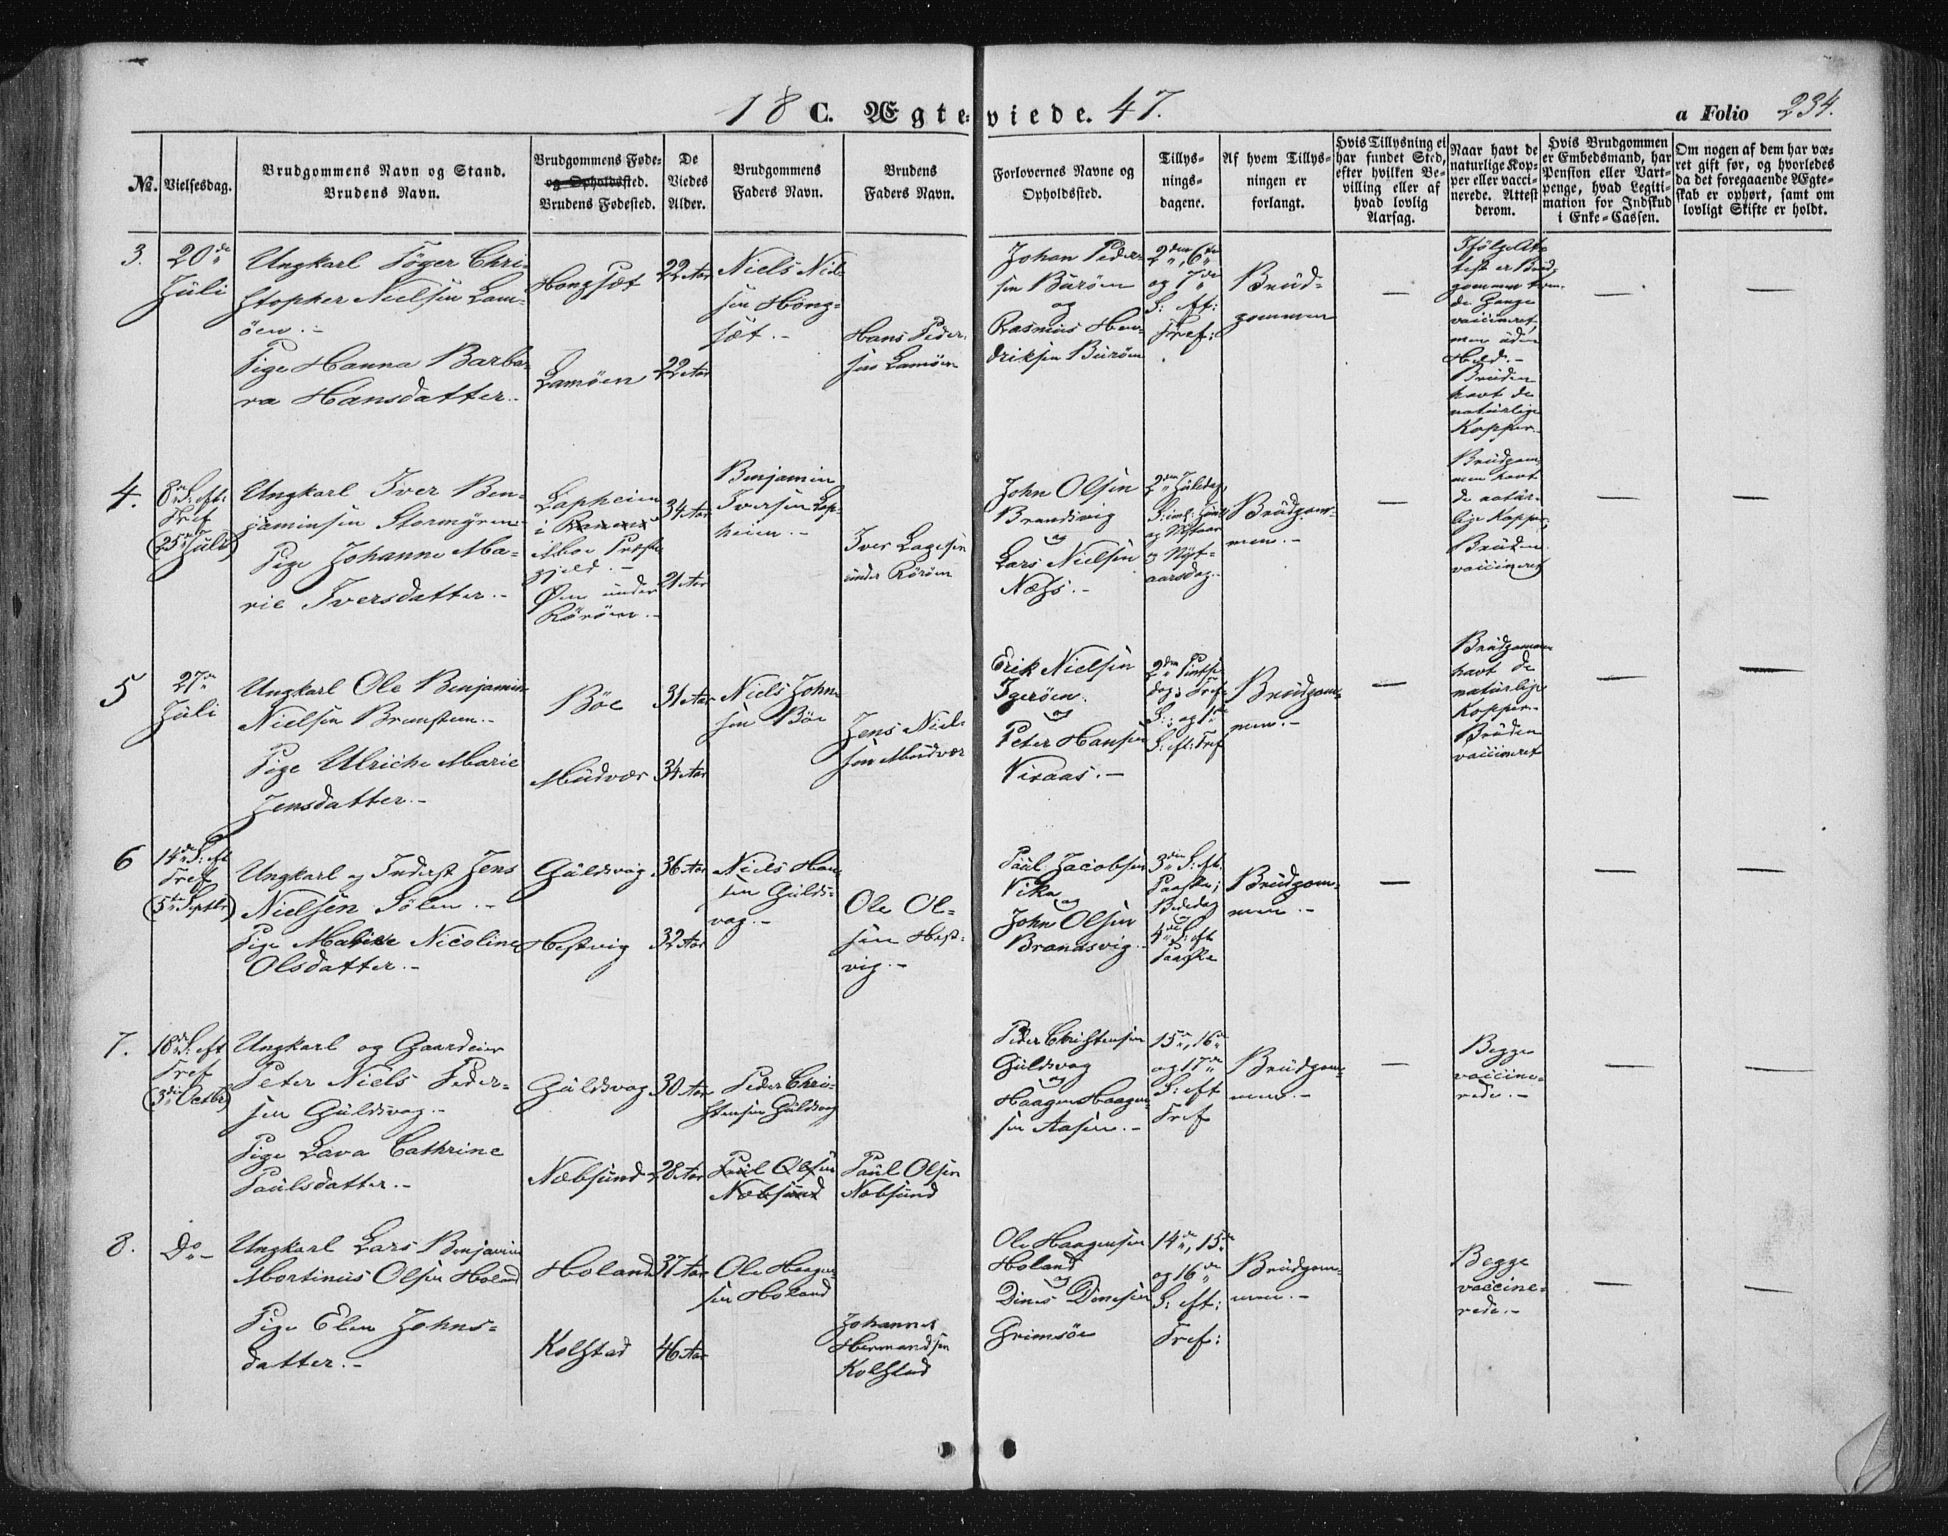 18 C. Ægteviede. 47.
a Folio 234.
No.
Vielsesdag.
Brudgommens Navn og Stand.
Brudens Navn.
Brudgommens Føde-
og Opholdssted.
Brudens Fødested.
De
Viedes
Alder.
Brudgommens
Faders Navn.
Brudens
Faders Navn.
Forlovernes Navne og
Opholdssted.
Tillys-
nings-
dagene.
Af hvem Tillys-
ningen er
forlangt.
Hvis Tillysning ei
har fundet Sted,
efter hvilken Be-
villing eller af
hvad lovlig
Aarsag.
Naar havt de
naturlige Kop-
per eller vacci-
nerede. Attest
derom.
Hvis Brudgommen
er Embedsmand, har
Pension eller Vart-
penge, hvad Legiti-
mation for Indskud
i Enke-Cassen.
Om nogen af dem har væ-
ret gift før, og hvorledes
da det foregaaende Ægte-
skab er ophørt, samt om
lovligt Skifte er holdt.
3.
20de
Júli
Ungkarl Töger Chri-
stopher Nielsen Lam-
öen.-
Pige Hanna Barba-
ra Hansdatter.-
Hongsæt
Lamöen
22 Aar
22 Aar
Niels Niel
sen Höng-
sæt.-
Hans Peder-
sen Lamöen
Johan Peder-
sen Buröen
og
Rasmus Hen-
driksen Buröen
2den, 6te
og 7de
S: eft:
Tref:
Brúd-
gommen
—
Ifölge At-
test er Brúd-
gommen tven-
de Gange
vaccineret,
men uden
Held.-
Brúden
havt de
natúrlige
Kopper.
—
—
4.
8de S: eft:
Tref
(25de Júli)
Ungkarl Iver Ben-
jaminsen Stormyren
Pige Johanne Ma-
rie Iversdatter.-
Lapheim
i
Præste
gjeld.-
Öen under
Röröen.-
34 Aar
21 Aar
Benjamin
Iversen Lap-
heim.-
Iver Lagesen
únder Röröen
John Olsen
Brandsvig
og
Lars Nielsen
Næss.-
2den Júledag,
og Nyt-
aarsdag.
Brúdgom-
men.-
—
Brúdgom-
men havt
de natúr-
lige Kopper,
Brúden
vaccineret
—
—
5
27de
Júli
Ungkarl Ole Benjamin
Nielsen Bransteen.-
Pige Ulriche Marie
Jensdatter.-
Böe
Múdvær
31 Aar
34 Aar
Niels John-
sen Böe
Jens Niel-
sen Múdvær
Erik Nielsen
Igeröen
og
Peter Hansen
Viraas.-
2den Pintse-
dag, Tref:
S:, og 1ste
S: eft: Tref
Brúdgom-
men.-
—
Brúdgommen
havt de
natúrlige
Kopper.
Brúden
vaccineret
—
—
6
14de S: eft
Tref
(5te Septbr)
Ungkarl og Inderst Jens
Nielsen Sölen.-
Pige Nicoline
Olsdatter.-
Gúldsvog
Hestvig
36 Aar
32 Aar
Niels Han
sen Gúlds-
vog.-
Ole Ol-
sen Hest-
vig.-
Paúl Jacobsen
Vika
og
John Olsen
Brandsvig.-
3die S: eft:
Paaske,
Bededag
og
4de S: eft
Paaske
Brúdgom-
men.-
—
—
—
7.
18de S: eft
Tref
(3die Octbr)
Ungkarl og Gaardeier
Peter Niels Peder-
sen Gúldsvog.-
Pige Lava Cathrine
Paúlsdatter.-
Gúldsvog
Næbsúnd
30 Aar
28 Aar
Peder Chri-
stensen Gúldsvog
Paúl Olsen
Næbsúnd
Paúl Olsen
Næbsúnd
Peder Christensen
Gúldsvog
og
Haagen Haagen-
sen Aasen.-
15de, 16de
og 17de
S: eft
Tref
Brúdgom-
men.-
—
Begge
vaccine-
rede.-
—
—
8.
Do-
Ungkarl Lars Benjamin
Mortinús Olsen Holand
Pige Elen Johns-
datter.-
Holand
Kolstad
37 Aar
46 Aar
Ole Haagen-
sen Holand
Johannes
Hermandsen
Kolstad
Ole Haagensen
Holand
og
Dines Dinesen
Grimsöe
14de, 15de
og 16de
S: eft:
Tref:
Brúdgom-
men.-
Begge
vaccine-
rede.-
—
—